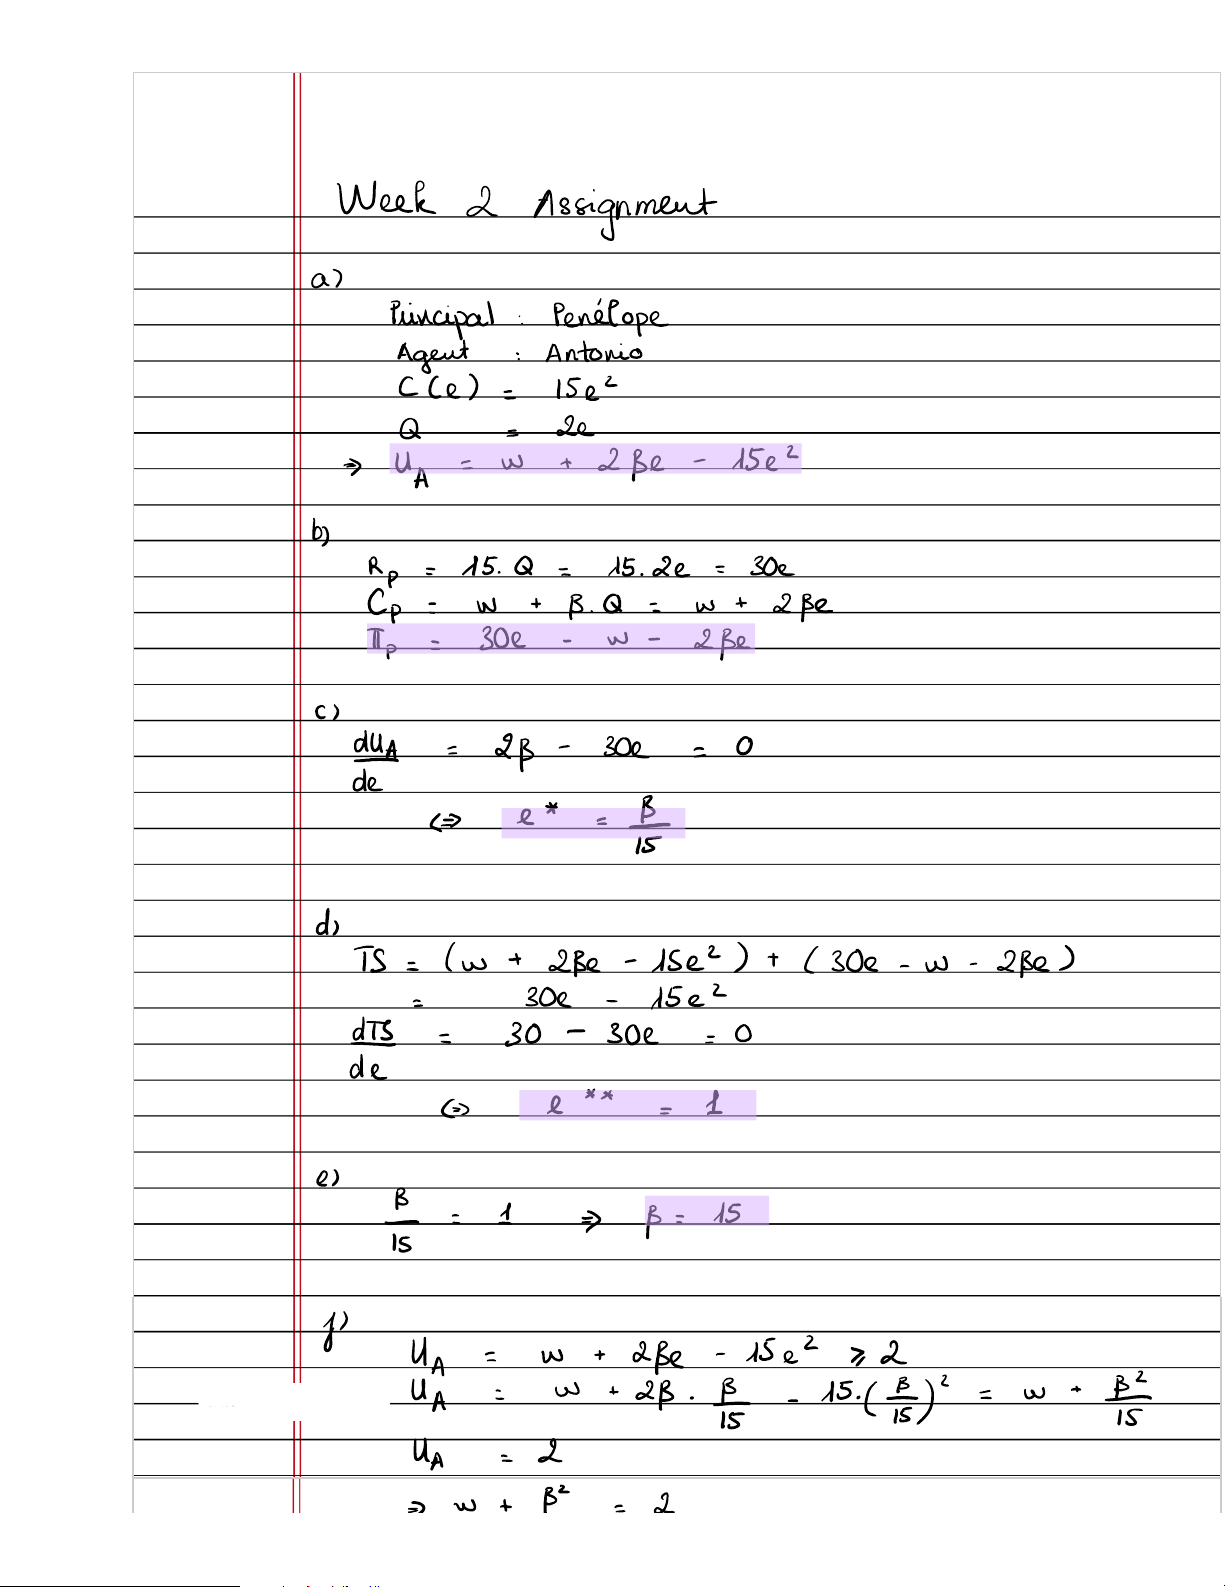 Week 2 Assignment
a)
Principal : Penélope
Agent : Antonio
C(e) = 15e²
Q = 2e
⇒ U_A = w + 2βe - 15e²
b)
R_p = 15.Q = 15.2e = 30e
C_p = w + β.Q = w + 2βe
π_p = 30e - w - 2βe
c)
dU_A/de = 2β - 30e = 0
⇔ e* = β/15
d)
TS = (w + 2βe - 15e²) + (30e - w - 2βe)
= 30e - 15e²
dTS/de = 30 - 30e = 0
⇔ e** = 1
e)
β/15 = 1 ⇒ β = 15
f)
U_A = w + 2βe - 15e² ⩾ 2
U_A = w + 2β . β/15 - 15.(β/15)² = w + β²/15
U_A = 2
⇒ w + β² = 2